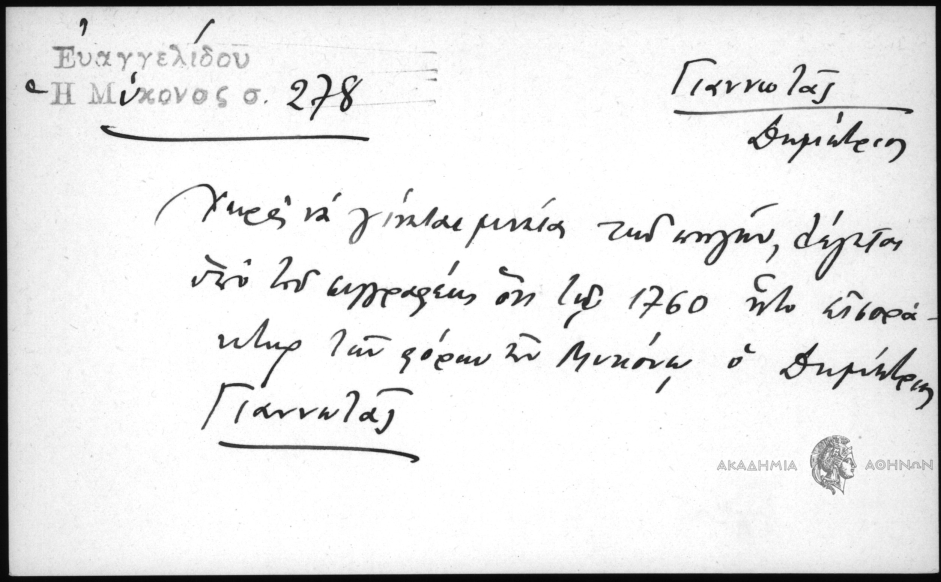 Εὐαγγελίδου
Ἡ Μύκονος σ. 278
Γιαννωτᾶς
Δημήτριος
Χωρὶς νὰ γίνεται μνεία τῶν πηγῶν, λέγεται
ὑπὸ τοῦ συγγραφέως ὅτι τῷ 1760 ἦτο εἰσπρά-
κτωρ τῶν φόρων τῶν Μυκόνου ὁ Δημήτριος
Γιαννωτᾶς
ΑΚΑΔΗΜΙΑ ΑΘΗΝΩΝ